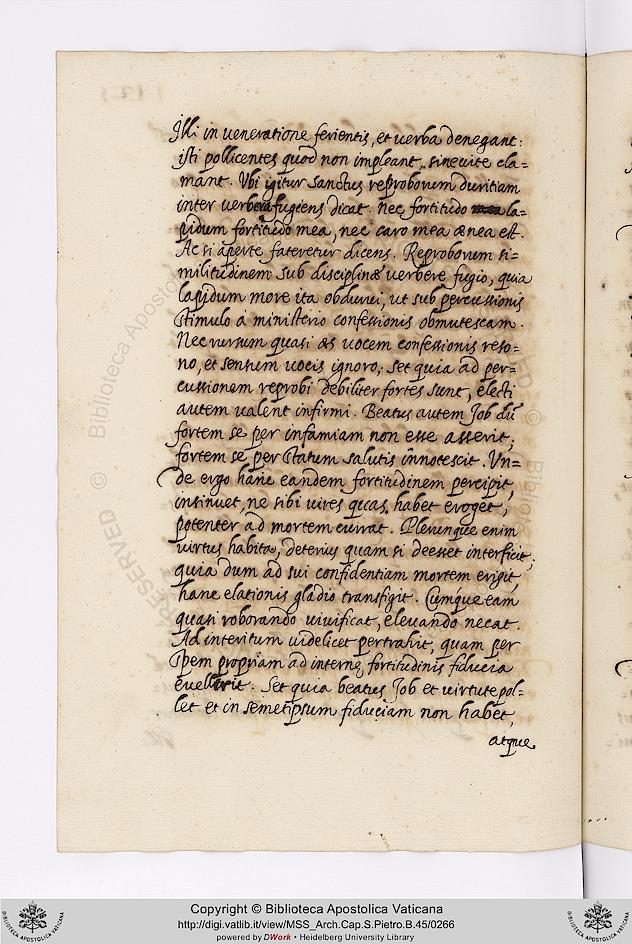 Illi in veneratione ferientis, et verba denegant:
isti pollicentes quod non impleant, sine vite cla=
mant. Vbi igitur Sanctus reproborum duritiam
inter verbera fugiens dicat. nec fortitudo la=
pidum fortitudo mea, nec caro mea ænea est.
Ac si aperte fateretur dicens. Reproborum si=
militudinem sub disciplinæ verbere fugio, quia
lapidum more ita obdurui, ut sub percussionis
stimulo a ministerio confessionis obmutescam.
Nec rursum quasi æs vocem confessionis reso=
no, et sensum vocis ignoro; set quia ad per=
cussionem reprobi debiliter fortes sunt, electi
autem valent infirmi. Beatus autem Job dū
fortem se per infamiam non esse asserit;
fortem se per statum salutis innotescit. Vn=
de ergo hanc eandem fortitudinem percipit,
insinuet, ne sibi vires quas habet eroget,
potenter ad mortem currat. Plerunque enim
virtus habita, deterius quam si deesset interficit;
quia dum ad sui confidentiam mortem erigit,
hanc elationis gladio transfigit. Cumque eam
quasi roborando vivificat, elevando necat.
Ad interitum videlicet pertrahit, quam per
spem propriam ad internę fortitudinis fiducia
evellerit. Set quia beatus Job et virtute pol=
let et in semetipsum fiduciam non habet,
atque
RESERVED © Biblioteca Apostolica
RESERVED © Biblio
Copyright © Biblioteca Apostolica Vaticana
http://digi.vatlib.it/view/MSS_Arch.Cap.S.Pietro.B.45/0266
powered by DWork • Heidelberg University Library